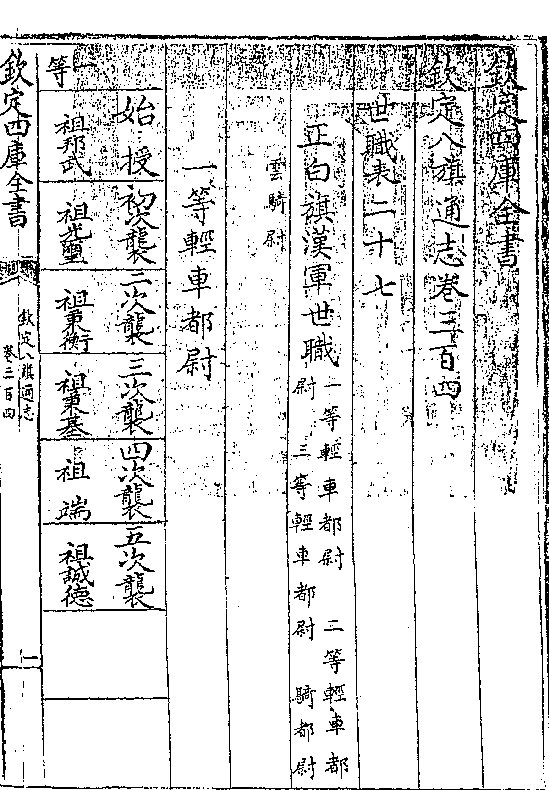 欽定四庫全書
欽定八旗通志卷三百四
世職表二十七
正白旗漢軍世職 一等輕車都尉 二等輕車都
尉 三等輕車都尉 騎都尉
雲騎尉
一等輕車都尉
始授 初次襲 二次襲 三次襲 四次襲 五次襲
一等 祖邦武 祖光璽 祖秉衡 祖秉基 祖端 祖誠德
欽定四庫全書
欽定八旗通志
卷三百四
一